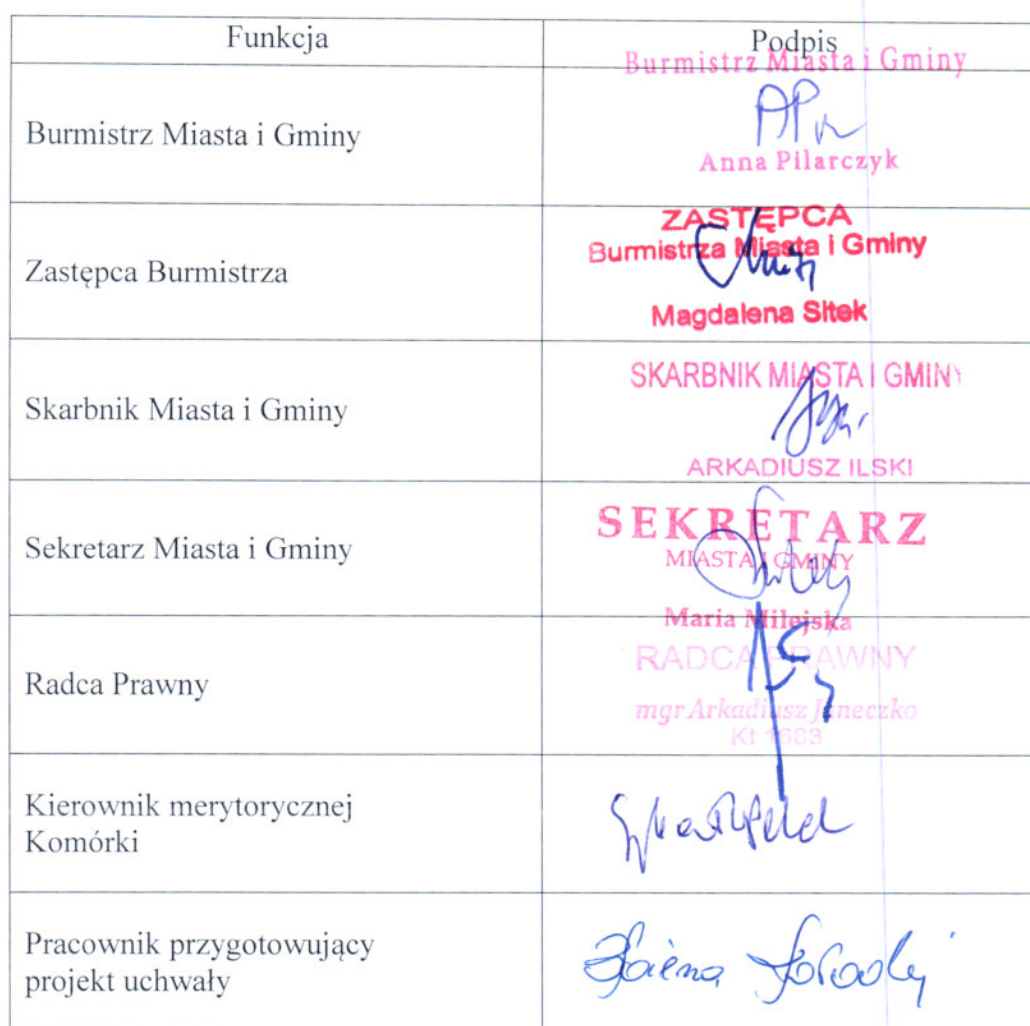 Funkcja
Podpis
Burmistrz Miasta i Gminy
Burmistrz Miasta i Gminy
Anna Pilarczyk
Zastępca Burmistrza
ZASTĘPCA
Burmistrza Miasta i Gminy
Magdalena Sitek
Skarbnik Miasta i Gminy
SKARBNIK MIASTA I GMINY
ARKADIUSZ ILSKI
Sekretarz Miasta i Gminy
SEKRETARZ
MIASTA I GMINY
Maria Milejska
Radca Prawny
RADCA PRAWNY
mgr Arkadiusz Janeczko
Kt 1683
Kierownik merytorycznej
Komórki
Pracownik przygotowujący
projekt uchwały